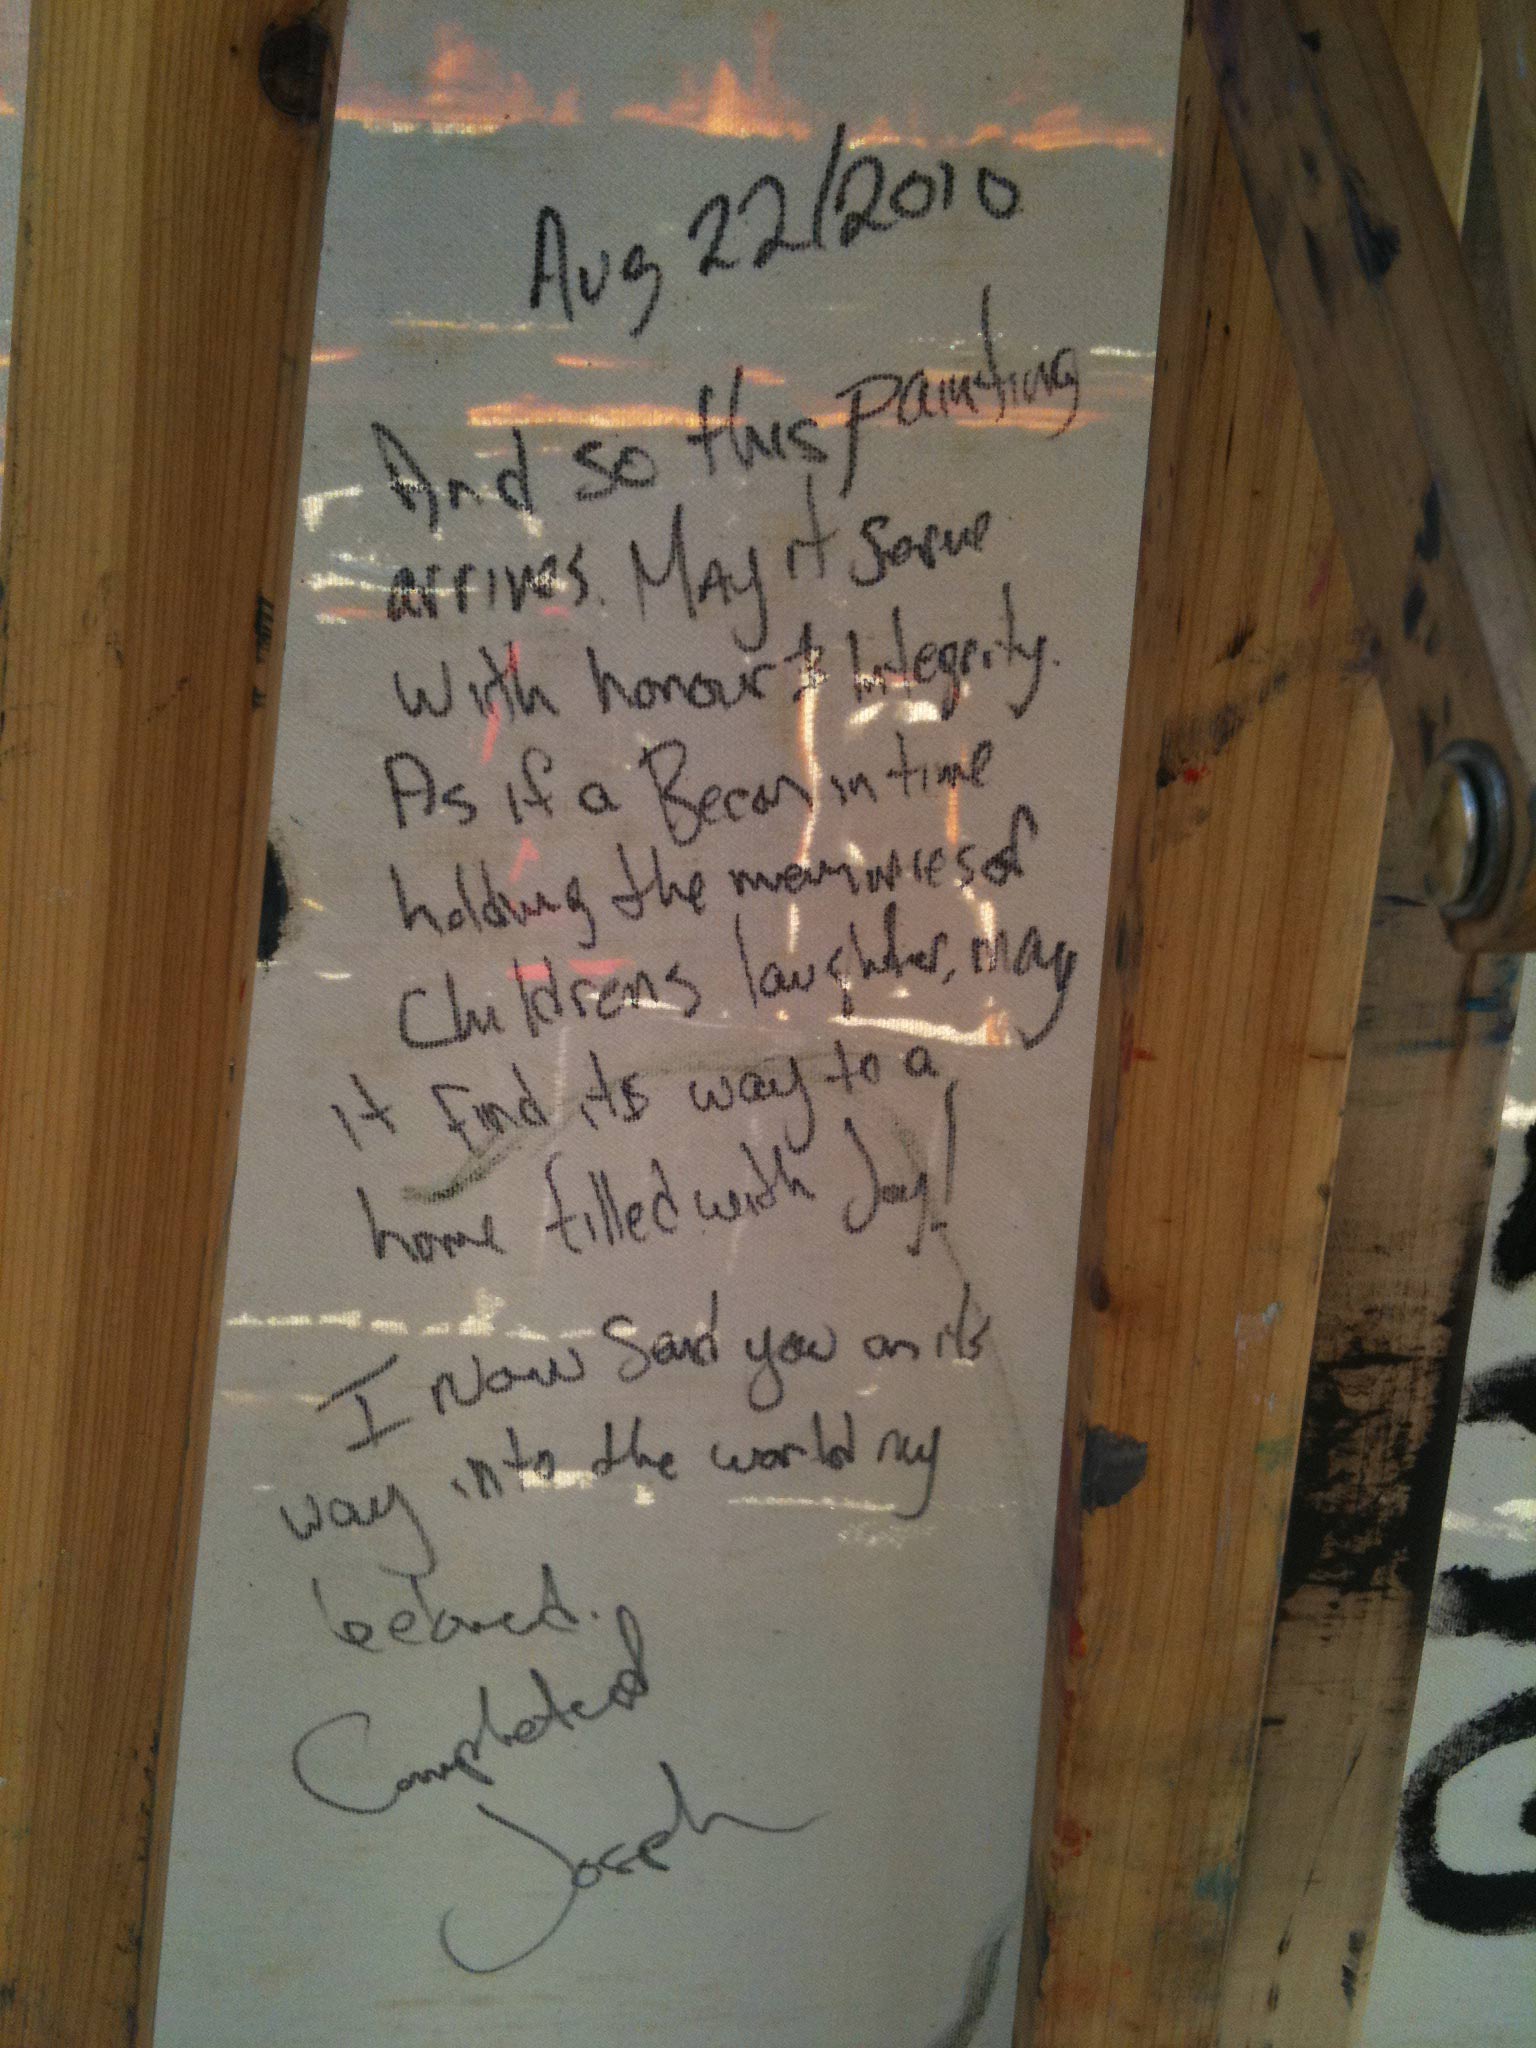 Aug 22/2010
And so this painting
arrives. May it serve
with honour & Integrity.
As if a Becon in time
holding the memories of
Childrens laughter, may
it find its way to a
home filled with Joy!
I Now Send you on its
way into the world my
beloved.
Completed
Joseph